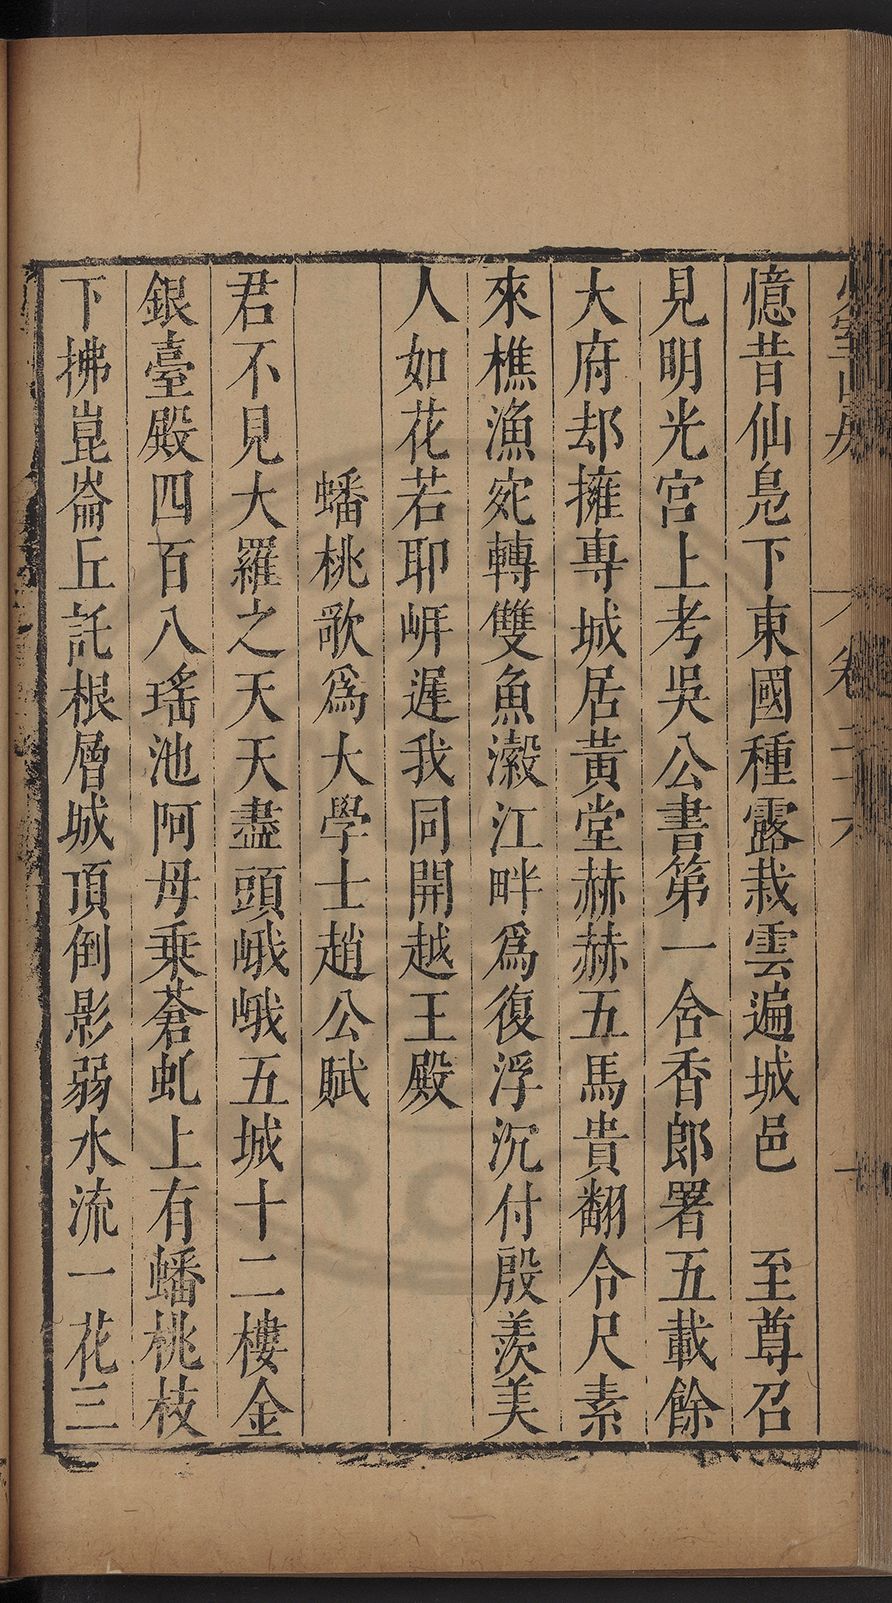 憶昔仙凫下東國種露栽雲遍城邑　至尊召
見明光宮上考吳公書第一含香郎署五載餘
大府却擁專城居黃堂赫赫五馬貴翻令尺素
來樵漁宛轉雙魚瀫江畔爲復浮沉付殷羨美
人如花若耶岍遲我同開越王殿
蟠桃歌爲大學士趙公賦
君不見大羅之天天盡頭峨峨五城十二樓金
銀臺殿四百八瑤池阿母乗蒼虬上有蟠桃枝
下拂崑崙丘託根層城頂倒影弱水流一花三